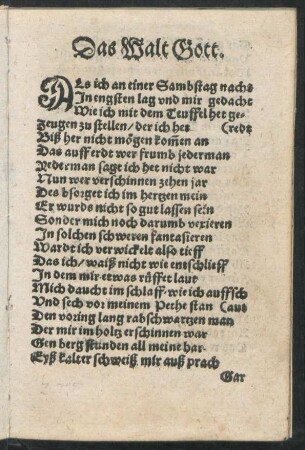 Das Walt Gott.
ALs ich an einer Sambstag nachs
In engsten lag vnd mir gedacht
Wie ich mit dem Teuffel het ge-
zeugen zu stellen / der ich het (redt
Biß her nicht mögen kom̃en an
Das aufferdt wer frumb jederman
Yederman sagt ich het nicht war
Nun wer verschinnen zehen jar
Des besorget ich im hertzen mein
Er wurds nicht so gut lassen sein
Sonder mich noch darumb vexieren
In solchen schweren fantasieren
Wardt ich verwickelt also tieff
Das ich / waiß nicht wie entschlieff
In dem mir etwas rüffet laut
Mich daucht im schlaff / wie ich auffsch
Vnd sech vor meinem Pethe stan (aut
Den voring lang rabschwartzen man
Der mir im holtz erschinnen war
Gen berg stunden all meine har
Eyß kalter schweiß mir auß prach
Gar